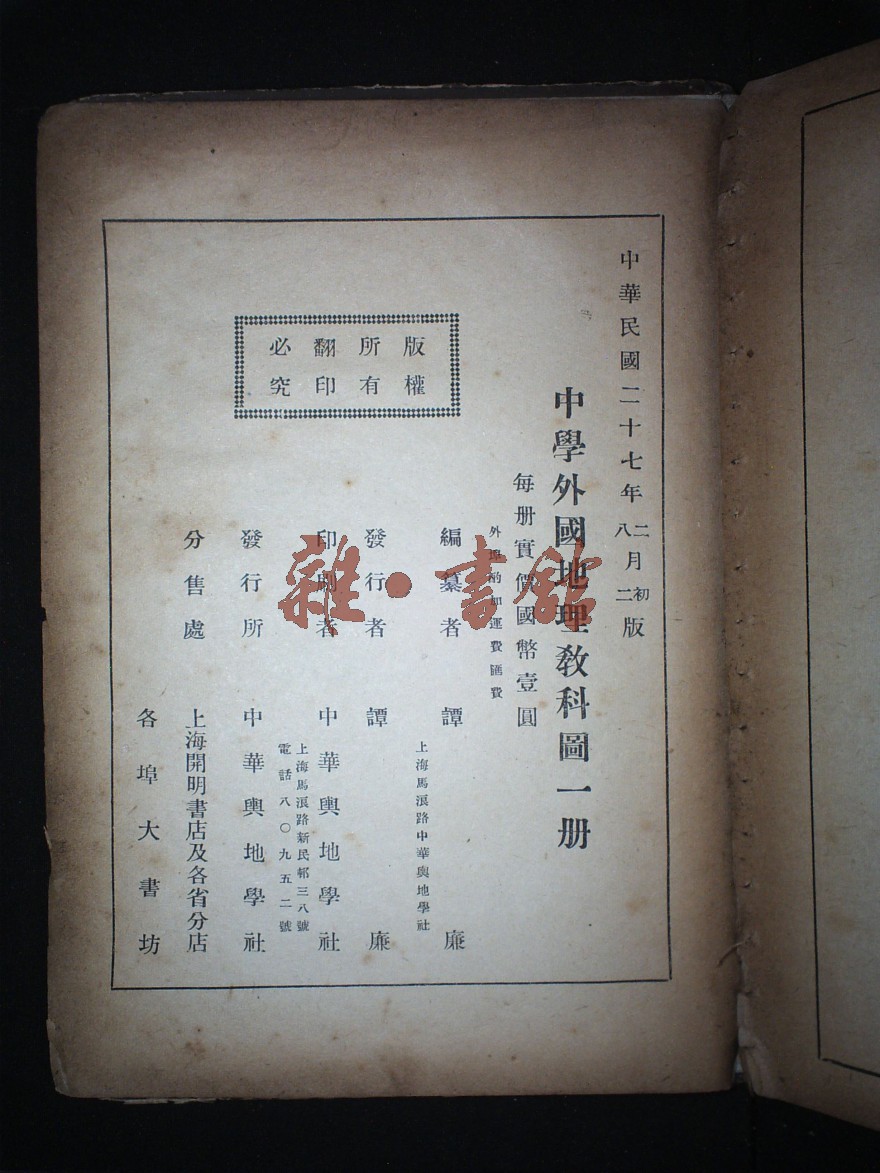 中華民國二十七年二八月初二版
中學外國地理敎科圖一册
每册實價國幣壹圓
外埠酌加運費匯費
編纂者 譚廉
上海馬浪路中華輿地學社
發行者 譚廉
印刷者 中華輿地學社
上海馬浪路新民邨三八號
電話八〇九五二號
發行所 中華輿地學社
分售處 上海開明書店及各省分店
各埠大書坊
版權所有翻印必究
雜·書館